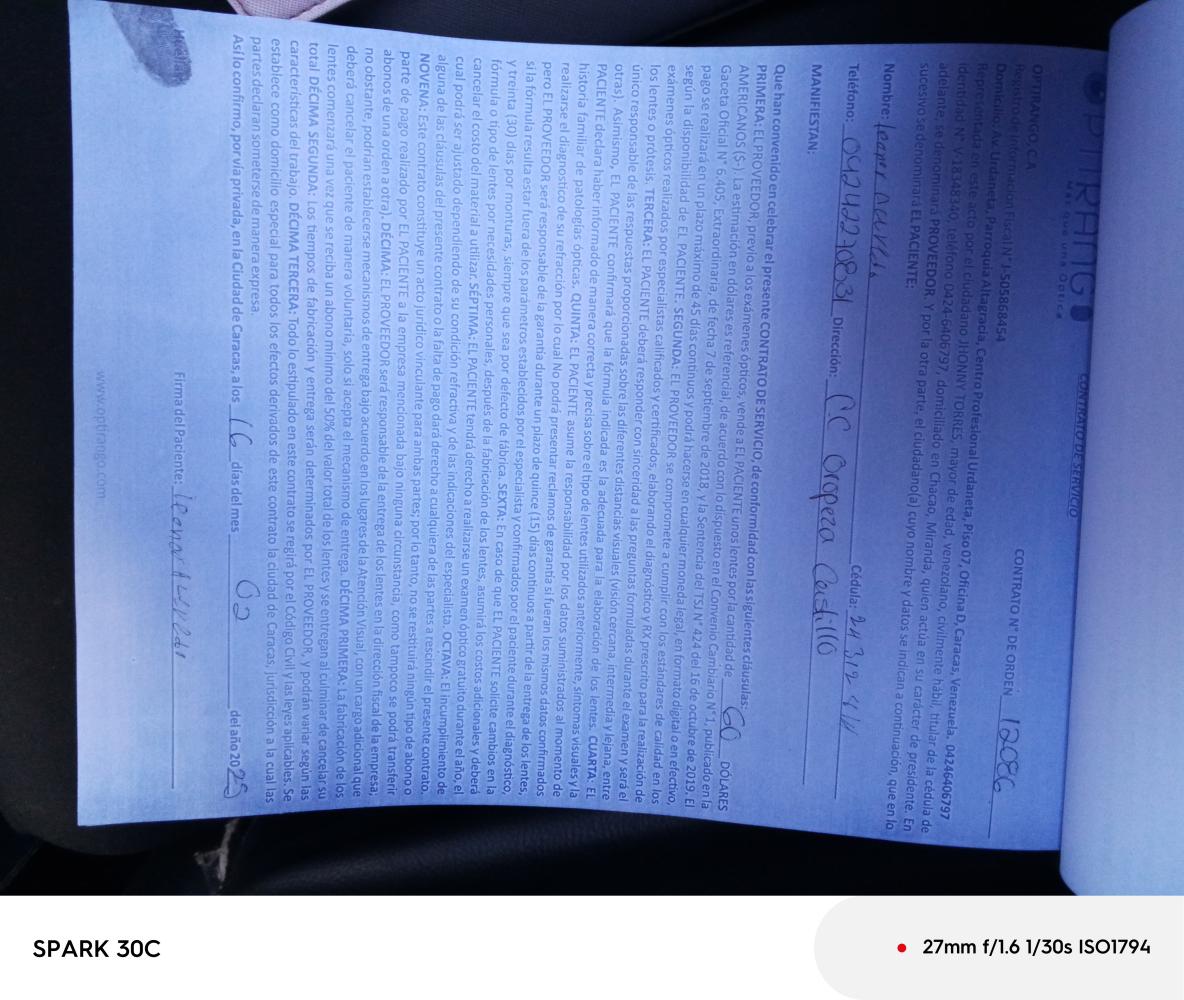 OPTIRANGO
Más que una Óptica
CONTRATO DE SERVICIO
CONTRATO N° DE ORDEN 12086
OPTIRANGO, CA
Registro de Información Fiscal N° J-505868454
Domicilio: Av. Urdaneta, Parroquia Altagracia, Centro Profesional Urdaneta, Piso 07, Oficina D, Caracas, Venezuela. 04246406797
Representada en este acto por el ciudadano JHONNY TORRES, mayor de edad, venezolano, civilmente hábil, titular de la cédula de
identidad N° V-18348340, teléfono 0424-6406797, domiciliado en Chacao, Miranda, quien actúa en su carácter de presidente. En
adelante, se denominará PROVEEDOR. Y por la otra parte, el ciudadano(a) cuyo nombre y datos se indican a continuación, que en lo
sucesivo se denominará EL PACIENTE:
Nombre:
Teléfono: 04242270831 Dirección: CC Oropeza Castillo Cédula:
MANIFIESTAN:
Que han convenido en celebrar el presente CONTRATO DE SERVICIO, de conformidad con las siguientes cláusulas:
PRIMERA: EL PROVEEDOR, previo a los exámenes ópticos, vende a EL PACIENTE unos lentes por la cantidad de 60 DÓLARES
AMERICANOS ($-). La estimación en dólares es referencial, de acuerdo con lo dispuesto en el Convenio Cambiario N° 1, publicado en la
Gaceta Oficial N° 6.405, Extraordinaria, de fecha 7 de septiembre de 2018, y la Sentencia del TSJ N° 424 del 16 de octubre de 2019. El
pago se realizará en un plazo máximo de 45 días continuos y podrá hacerse en cualquier moneda legal, en formato digital o en efectivo,
según la disponibilidad de EL PACIENTE. SEGUNDA: EL PROVEEDOR se compromete a cumplir con los estándares de calidad en los
exámenes ópticos realizados por especialistas calificados y certificados, elaborando el diagnóstico y RX prescrito para la realización de
los lentes o prótesis. TERCERA: EL PACIENTE deberá responder con sinceridad a las preguntas formuladas durante el examen y será el
único responsable de las respuestas proporcionadas sobre las diferentes distancias visuales (visión cercana, intermedia y lejana, entre
otras). Asimismo, EL PACIENTE confirmará que la fórmula indicada es la adecuada para la elaboración de los lentes. CUARTA: EL
PACIENTE declara haber informado de manera correcta y precisa sobre el tipo de lentes utilizados anteriormente, síntomas visuales y la
historia familiar de patologías ópticas. QUINTA: EL PACIENTE asume la responsabilidad por los datos suministrados al momento de
realizarse el diagnostico de su refracción por lo cual No podrá presentar reclamos de garantía si fueran los mismos datos confirmados
pero EL PROVEEDOR será responsable de la garantía durante un plazo de quince (15) días continuos a partir de la entrega de los lentes,
si la fórmula resulta estar fuera de los parámetros establecidos por el especialista y confirmados por el paciente durante el diagnóstico,
y treinta (30) días por monturas, siempre que sea por defecto de fábrica. SEXTA: En caso de que EL PACIENTE solicite cambios en la
fórmula o tipo de lentes por necesidades personales, después de la fabricación de los lentes, asumirá los costos adicionales y deberá
cancelar el costo del material a utilizar. SEPTIMA: EL PACIENTE tendrá derecho a realizarse un examen óptico gratuito durante el año, el
cual podrá ser ajustado dependiendo de su condición refractiva y de las indicaciones del especialista. OCTAVA: El incumplimiento de
alguna de las cláusulas del presente contrato o la falta de pago dará derecho a cualquiera de las partes a rescindir el presente contrato.
NOVENA: Este contrato constituye un acto jurídico vinculante para ambas partes; por lo tanto, no se restituirá ningún tipo de abono o
parte de pago realizado por EL PACIENTE a la empresa mencionada bajo ninguna circunstancia, como tampoco se podrá transferir
abonos de una orden a otra). DÉCIMA: EL PROVEEDOR será responsable de la entrega de los lentes en la dirección fiscal de la empresa,
no obstante, podrían establecerse mecanismos de entrega bajo acuerdo en los lugares de la Atención Visual, con un cargo adicional que
deberá cancelar el paciente de manera voluntaria, solo si acepta el mecanismo de entrega. DÉCIMA PRIMERA: La fabricación de los
lentes comenzará una vez que se reciba un abono mínimo del 50% del valor total de los lentes y se entregan al culminar de cancelar su
total DÉCIMA SEGUNDA: Los tiempos de fabricación y entrega serán determinados por EL PROVEEDOR, y podrán variar según las
características del trabajo. DÉCIMA TERCERA: Todo lo estipulado en este contrato se regirá por el Código Civil y las leyes aplicables. Se
establece como domicilio especial para todos los efectos derivados de este contrato la ciudad de Caracas, jurisdicción a la cual las
partes declaran someterse de manera expresa.
Así lo confirmo, por vía privada, en la Ciudad de Caracas, a los 16 días del mes 02 del año 2025
Huella
Firma del Paciente:
www.optirango.com
SPARK 30C
27mm f/1.6 1/30s ISO1794